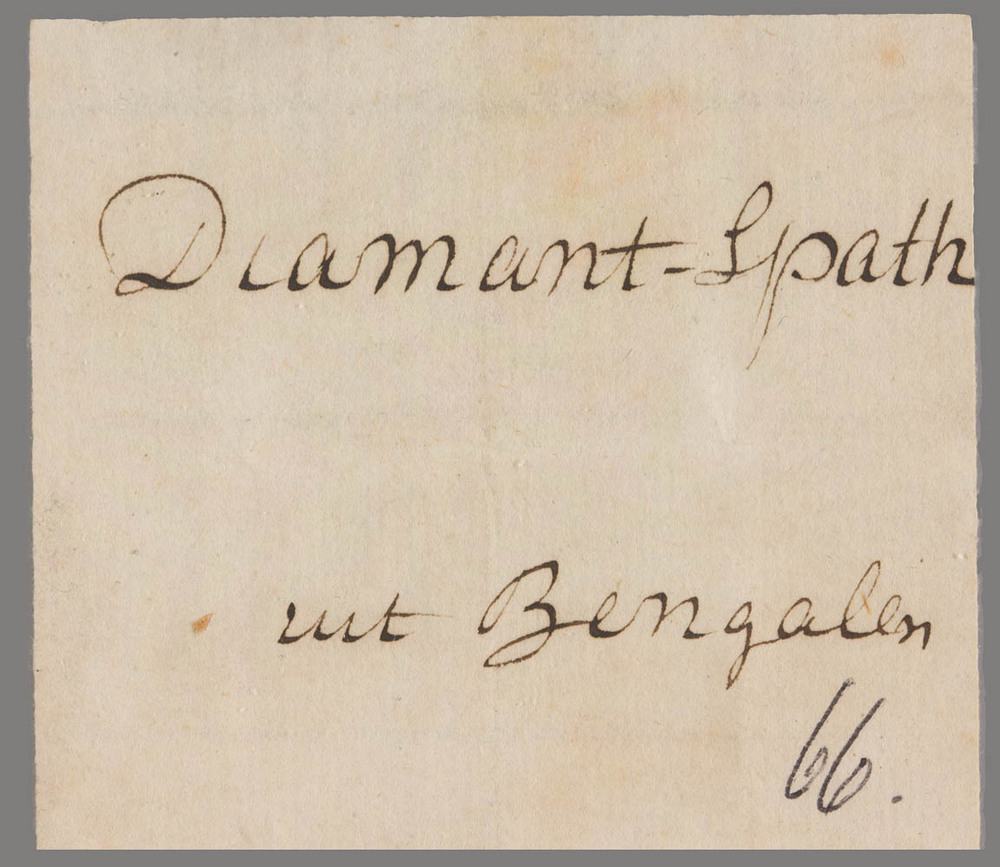 Diamant-Spath
uit Bengalen
66.